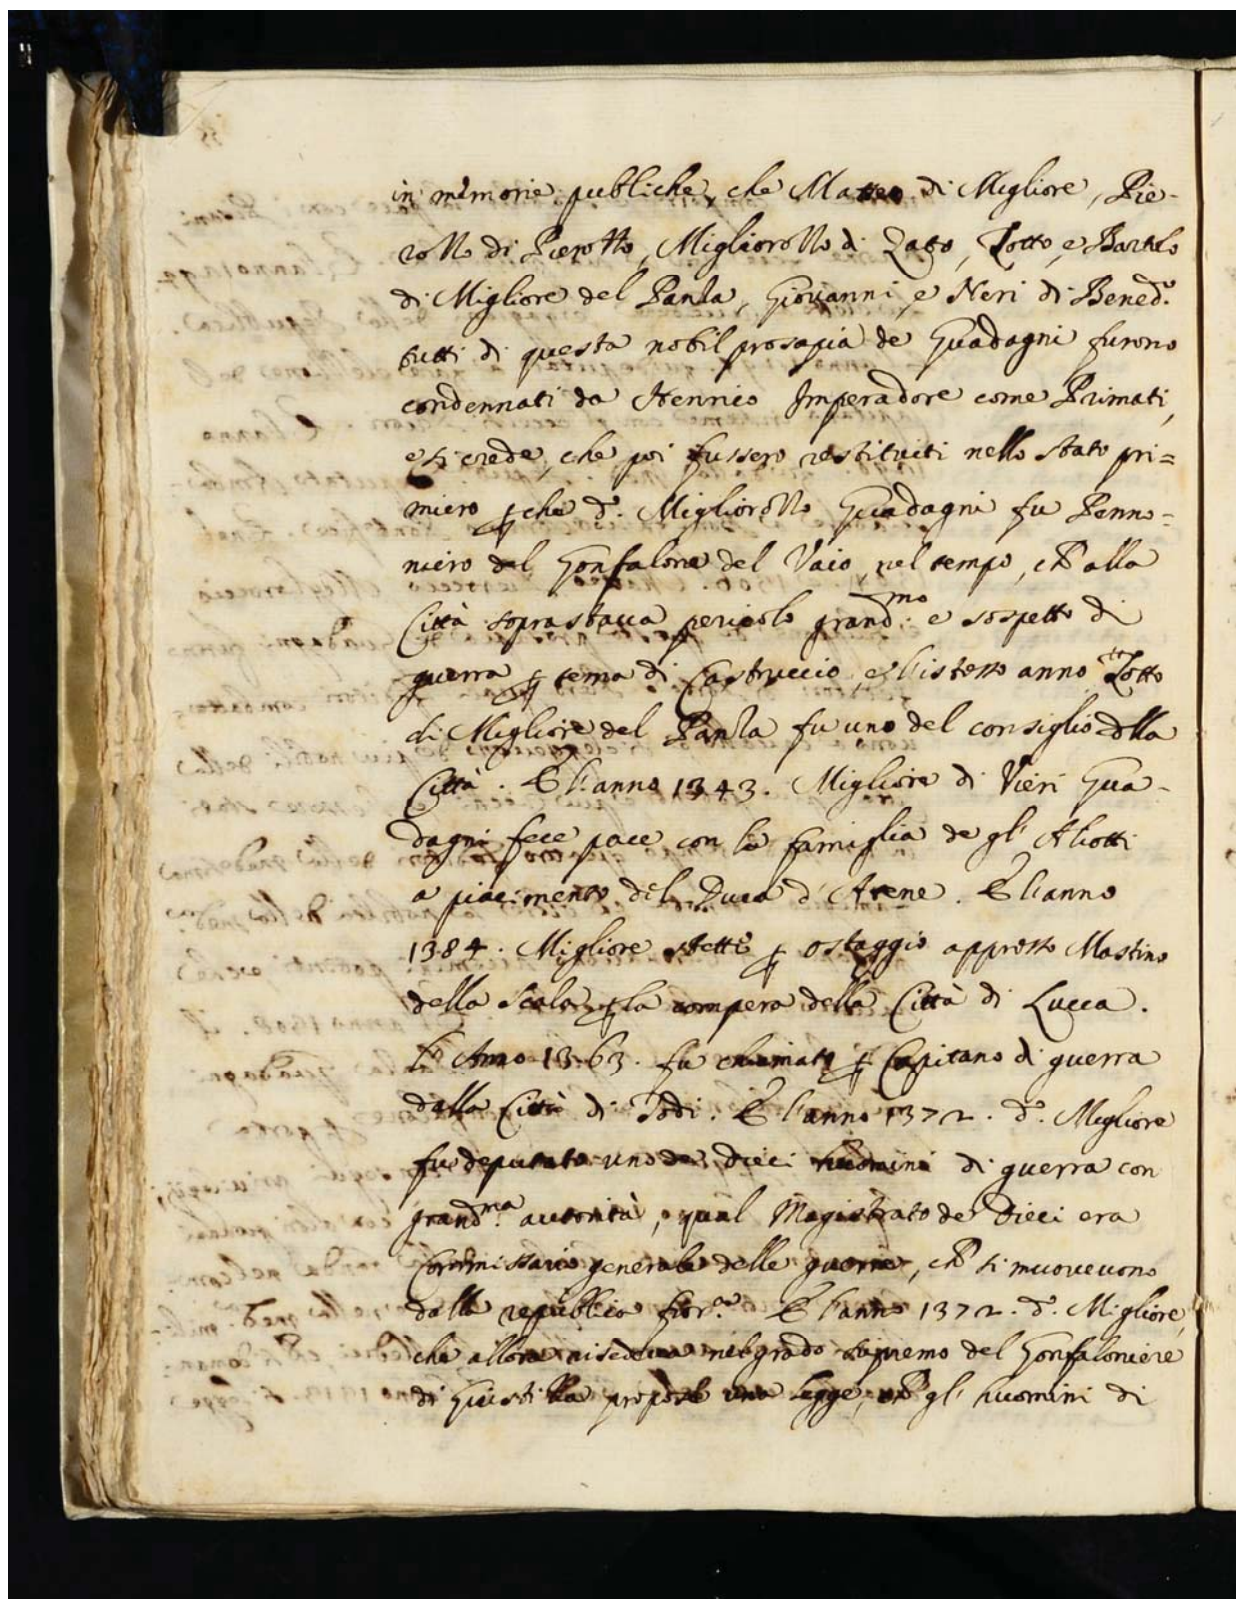 in memorie publiche, che Matteo di Migliore, Pie-
rotto di Pierotto, Migliorotto di Zato, Totto, e Bartolo
di Migliore del Panta, Giovanni, e Neri di Bened.º
tutti di questa nobil prosapia de Guadagni furono
condennati da Henrico Imperadore come Primati,
e si crede, che poi fussero restituiti nello stato pri=
miero ꝑche d.º Migliorotto Guadagni fu Penno=
niero del Gonfalone del Vaio, nel tempo, ch alla
Città soprastava pericolo grand.mo e sospetto di
guerra ꝑ tema di Castruccio e l'istesso anno Totto
di Migliore del Panta fu uno del consiglio della
Città. E l'anno 1343. Migliore di Vieri Gua-
dagni fece pace con la famiglia de gl' Aliotti
a piacimento del Duca d'Atene. E l'anno
1384. Migliore stette ꝑ ostaggio appresso Mastino
della Scala ꝑ la compera della Città di Lucca.
l'Anno 1363. fu chiamato ꝑ Capitano di guerra
dalla Città di Todi. E l'anno 1372. d.º Migliore
fu deputato uno de dieci huomini di guerra con
grand.ma autorità, qual Magistrato de Dieci era
Commissario generale delle guerre, ch si muovevono
dalla republica fior.na E l'anno 1372. d.º Migliore,
che allora risedeva nel grado supremo del Gonfaloniere
di Giustitia propose una legge, ch gl' huomini di